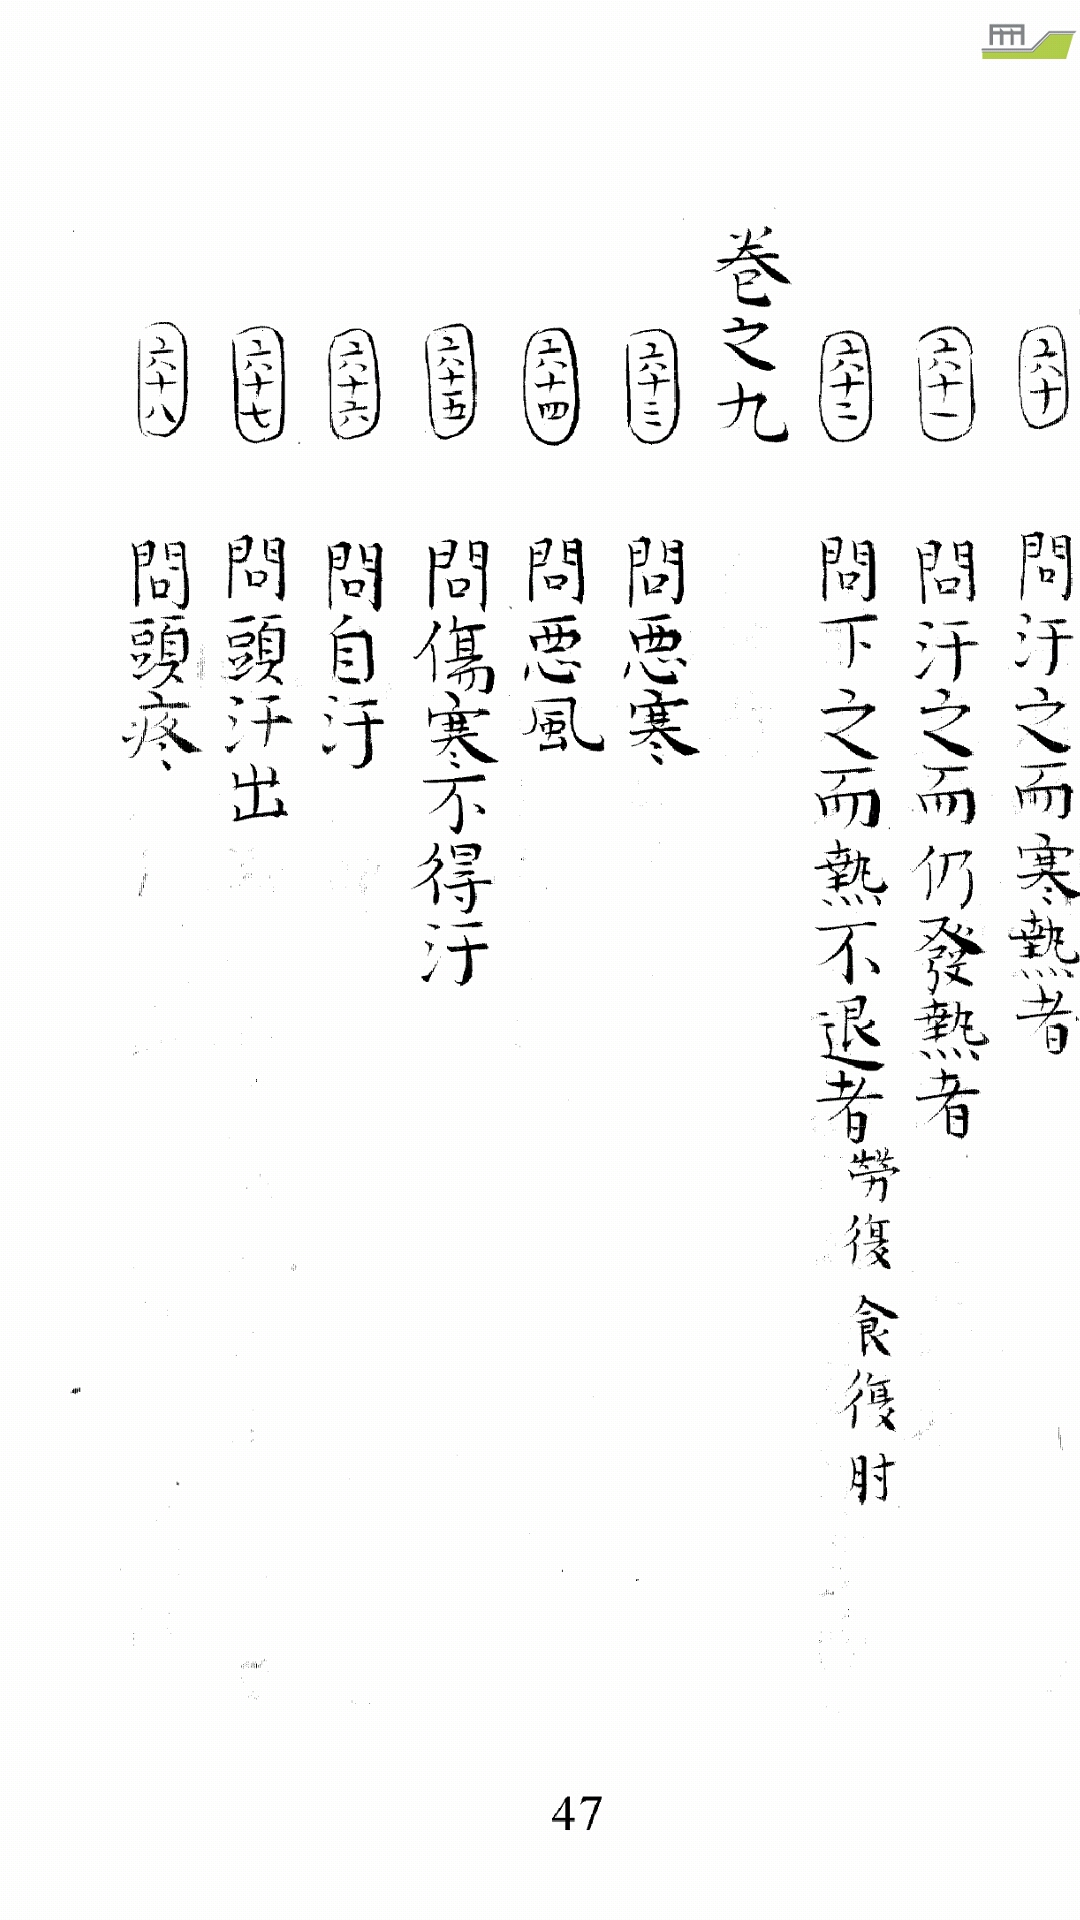 六十 問汗之而寒熱者
六十一 問汗之而仍發熱者
六十二 問下之而熱不退者 勞復 食復 附
卷之九
六十三 問惡寒
六十四 問惡風
六十五 問傷寒不得汗
六十六 問自汗
六十七 問頭汗出
六十八 問頭疼
47